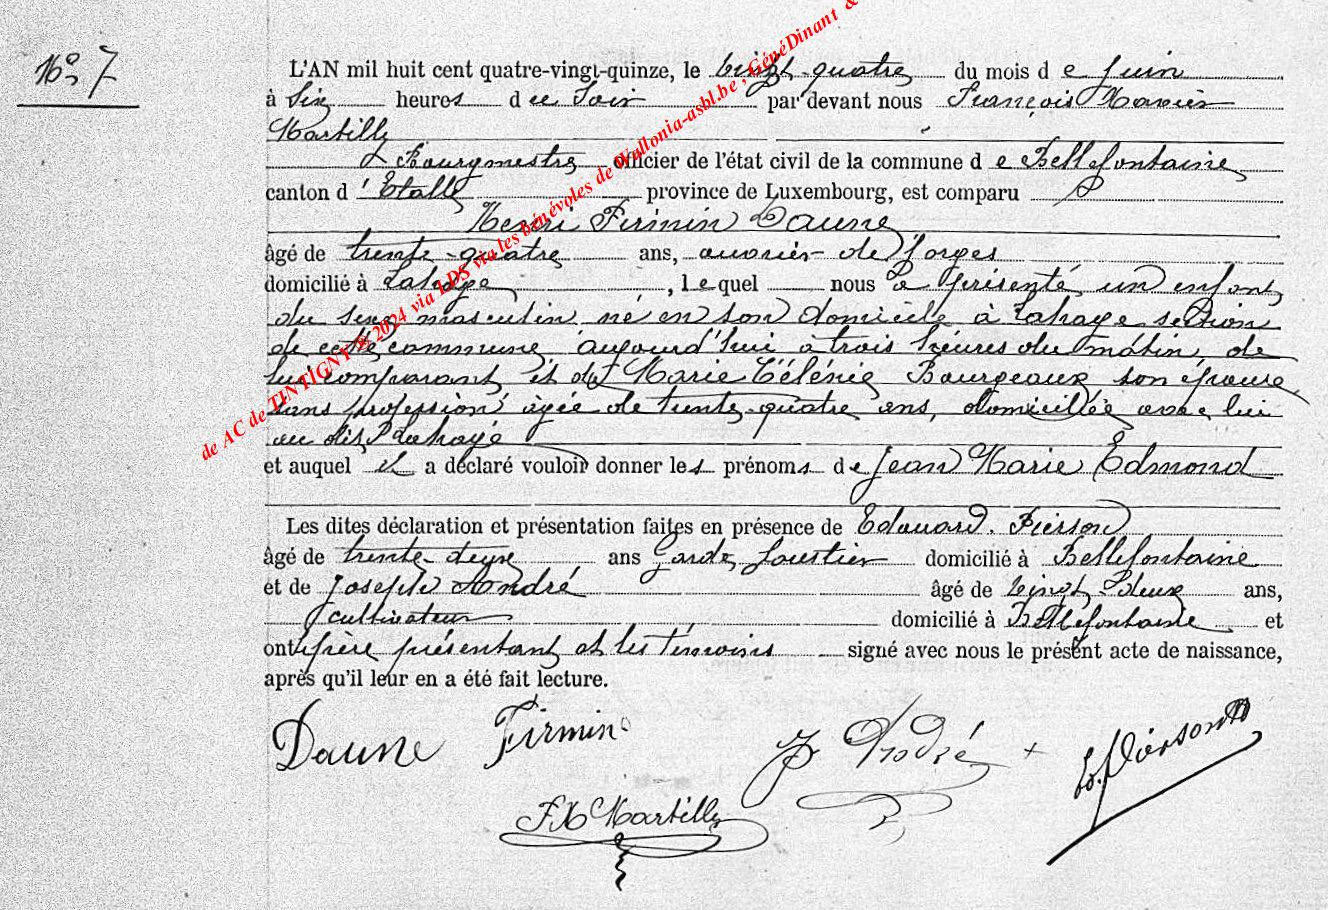 No 7
L'AN mil huit cent quatre-vingt-quinze, le vingt-quatre du mois de Juin
à Six heures du Soir par devant nous François Xavier
Martilly
Bourgmestre officier de l'état civil de la commune de Bellefontaine
canton d'Etalle province de Luxembourg, est comparu
Henri Firmin Daune
âgé de trente-quatre ans, ouvrier de forges
domicilié à Lahage, lequel nous a présenté un enfant
du sexe masculin, né en son domicile à Lahage section
de cette commune, aujourd'hui à trois heures du matin, de
lui comparant et de Marie Célénie Bourgeaux son épouse
sans profession âgée de trente-quatre ans, domiciliée avec lui
au dit Lahage
et auquel il a déclaré vouloir donner les prénoms de Jean Marie Edmond
Les dites déclaration et présentation faites en présence de Edouard Pierson
âgé de trente-deux ans Garde forestier domicilié à Bellefontaine
et de Joseph André âgé de vingt deux ans,
cultivateur domicilié à Bellefontaine et
ont père présentant et les témoins signé avec nous le présent acte de naissance,
après qu'il leur en a été fait lecture.
Daune Firmin
J André
Ed. Pierson
FX Martilly
de AC de TINTIGNY © 2024 via LDS via les bénévoles de Wallonia-asbl.be ; GénéDinant &